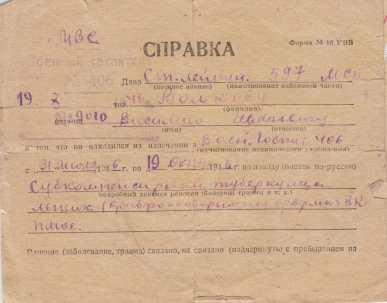 ЦВС
СПРАВКА
Форма № 16 УНВ
Военный госпиталь
№ 406
Дана Ст. лейтен. 597 МСП
(воинское звание) (наименование войсковой части)
19 X тов. Волкову
(фамилия)
№ 9010 Василию Ивановичу
(имя) (отчество)
в том, что он находился на излечении в Воен. Госпит. 406
(наименование медицинского учреждения)
с 31 Июля 1946 г. по 19 Окт 1946 г. по поводу (писать по-русски)
Субкомпенсирован. туберкулеза
подробный диагноз ранения (болезни) травмы и т. п.)
легких (фиброзно-кавернозная форма) ВК
плюс.
Ранение (заболевание, травма) связано, не связано (подчеркнуть) с пребыванием на